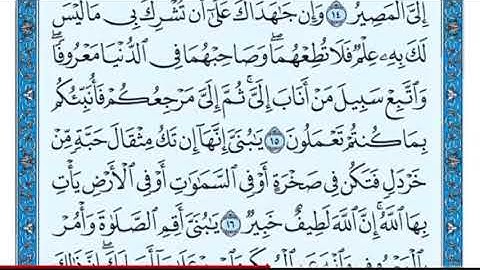 إِلَىَّ ٱلْمَصِيرُ ١٤ وَإِن جَـٰهَدَاكَ عَلَىٰٓ أَن تُشْرِكَ بِى مَا لَيْسَ
لَكَ بِهِۦ عِلْمٌ فَلَا تُطِعْهُمَا ۖ وَصَاحِبْهُمَا فِى ٱلدُّنْيَا مَعْرُوفًا ۖ
وَٱتَّبِعْ سَبِيلَ مَنْ أَنَابَ إِلَىَّ ۚ ثُمَّ إِلَىَّ مَرْجِعُكُمْ فَأُنَبِّئُكُم
بِمَا كُنتُمْ تَعْمَلُونَ ١٥ يَـٰبُنَىَّ إِنَّهَآ إِن تَكُ مِثْقَالَ حَبَّةٍ مِّنْ
خَرْدَلٍ فَتَكُن فِى صَخْرَةٍ أَوْ فِى ٱلسَّمَـٰوَٰتِ أَوْ فِى ٱلْأَرْضِ يَأْتِ
بِهَا ٱللَّهُ ۚ إِنَّ ٱللَّهَ لَطِيفٌ خَبِيرٌ ١٦ يَـٰبُنَىَّ أَقِمِ ٱلصَّلَوٰةَ وَأْمُرْ